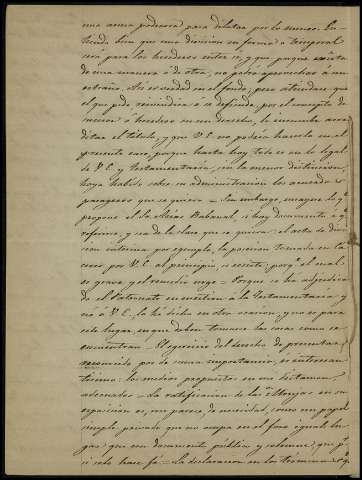 una nueva prorroga para dilatar por lo menos. En-
tiendo bien que una division en forma o temporal
será para los herederos entre sí, y que porque exista
de una manera ó de otra, no podrá aprovechar á un
estraño. Así es verdad en el fondo; pero atendiendo que
el que pide reivindica ó se defiende, por el concepto de
sucesor ó heredero en un derecho, le incumbe acre-
ditar el título, y que V.E. no podria hacerlo en el
presente caso, porque hasta hoy todo es en lo legal
de V.E. y testamentaría, sin la menor distincion,
haya habido sobre su administracion los acuerdos
que se quiera. Sin embargo, ensayese lo q.e
propone el Sr. Arias Rabanal, si hay documento á q.e
referirse, y sea de la clase que se quiera: el acto de divi-
sion interina por ejemplo, la posesion tomada en la
por V.E. al principio, si existe; porq.e el mal
es grave y el remedio urge. Porque se ha adjudica-
do el Patronato en cuestion á la Testamentaria y
no á V.E., lo he dicho en otra ocasion, y no es para
este lugar, en que deben tomarse las cosas como se
encuentran. El egercicio del derecho de presentar
reconocido, por de suma importancia, é interesan-
tísimo: los medios propuestos en ese dictamen
adecuados. La ratificacion de las Monjas en su
esposicion es, me parece, de necesidad, como un papel
simple privado que no ocupa en el foro igual lu-
gar que un documento público y solemne, que p.r
si solo hace fé. La declaracion en los términos q.e